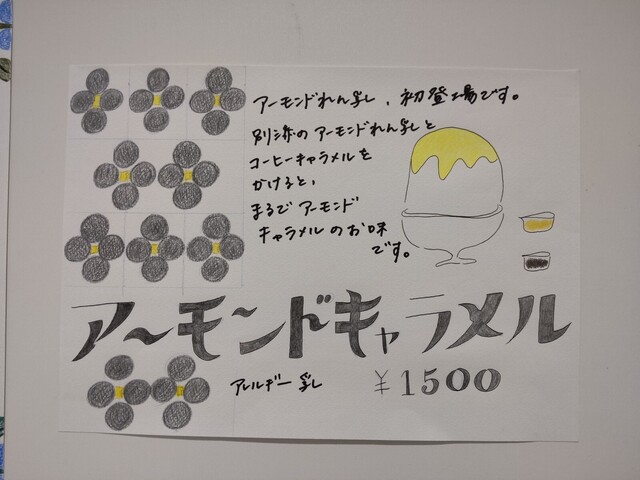 アーモンドれん乳、初登場です。
別添のアーモンドれん乳と
コーヒーキャラメルを
かけると、
まるでアーモンド
キャラメルのお味
です。
アーモンドキャラメル
アレルギー 乳
¥1500